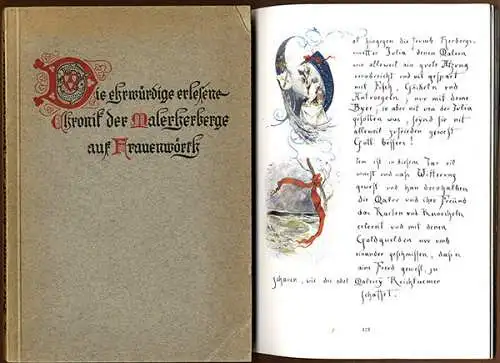 Die ehrwürdige erlesene
Chronik der Malerherberge
auf Frauenwörth
al hingegen die Herbergs-
mutter Julia denen Malern
wie alleweil ein gute Atzung
verabreicht und nit gespart
mit Fisch, Göckeln und
nur mit deme
Byer, so aber nit von der Julia
gesotten was, seynd sie nit
alleweil zufrieden gewest
Gott bessers!
Item ist in diesem Jar vil
unnst und nass Witterung
gewest und han derohalben
die Maler und ihre Freund
das Karten und Knoecheln
erlernt und mit denen
Goldgulden nur umb
einander geschmissen, dass es
eine Freud gewest, zu
schauen, wie die edel Malerey Reichtuemer
schaffet.
123